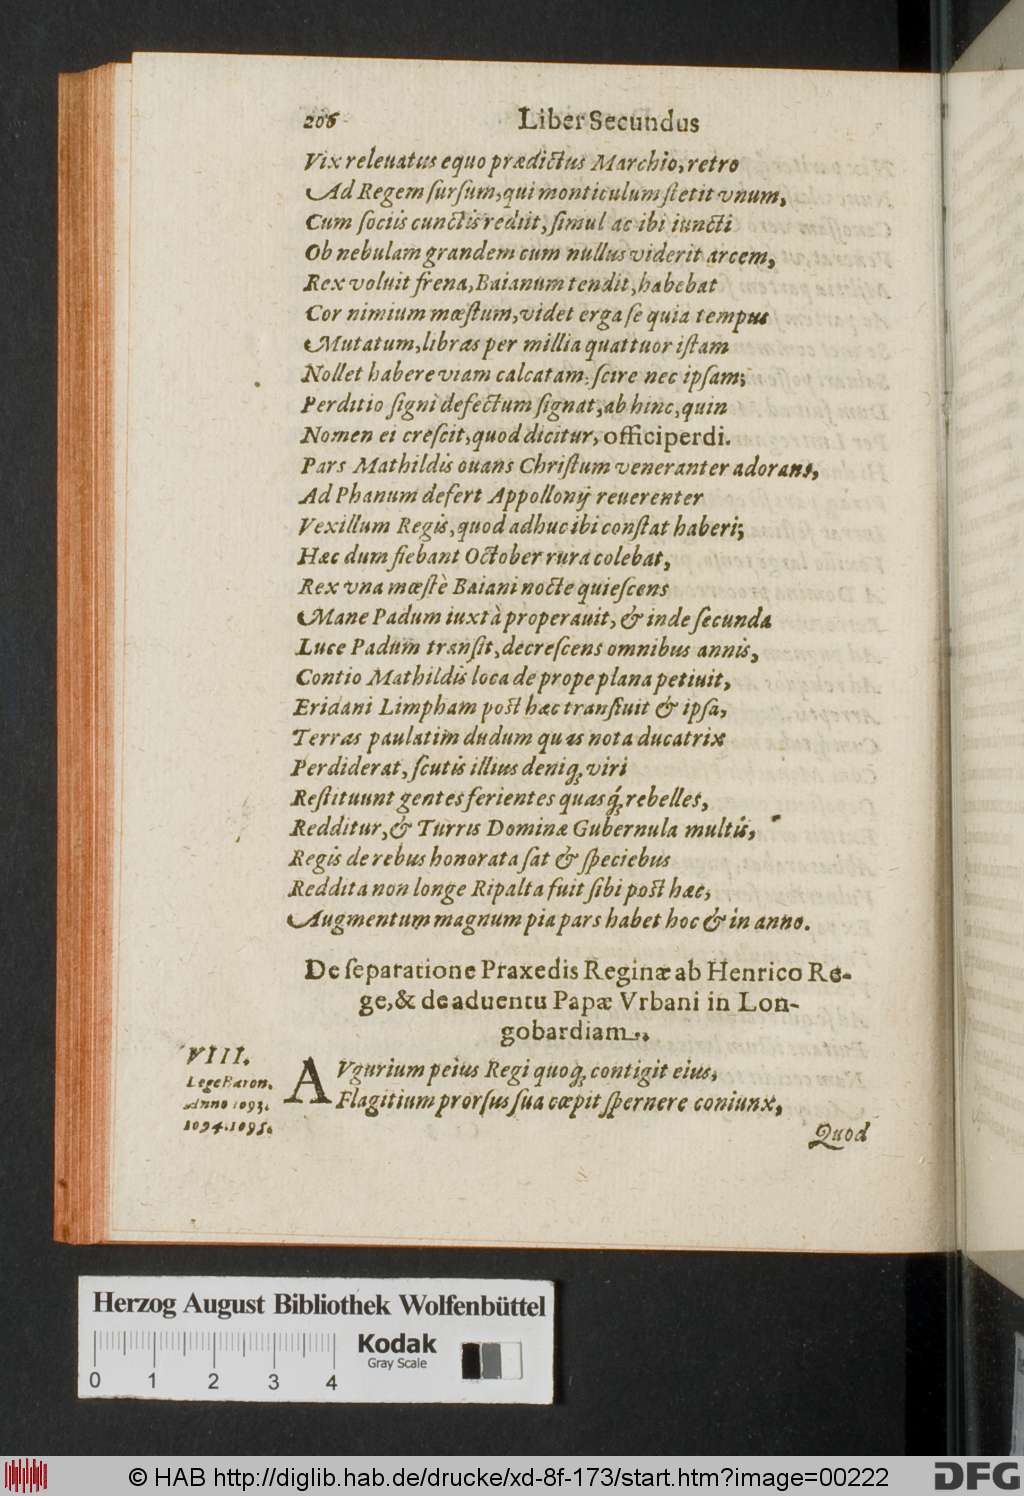 206 Liber Secundus
Vix releuatus equo prædictus Marchio, retro
Ad Regem sursum, qui monticulum stetit vnum,
Cum sociis cunctis rediit, simul ac ibi iuncti
Ob nebulam grandem cum nullus viderit arcem,
Rex voluit frena, Baianum tendit, habebat
Cor nimium mœstum, videt erga se quia tempus
Mutatum, libras per millia quattuor istam
Nollet habere viam calcatam: scire nec ipsam;
Perditio signi defectum signat, ab hinc, quin
Nomen ei crescit, quod dicitur, officiperdi.
Pars Mathildis ouans Christum veneranter adorans,
Ad Phanum defert Appollonij reuerenter
Vexillum Regis, quod adhuc ibi constat haberi;
Hæc dum fiebant October rura colebat,
Rex vna mœstè Baiani nocte quiescens
Mane Padum iuxtà properauit, & inde secunda
Luce Padum transit, decrescens omnibus annis,
Contio Mathildis loca de prope plana petiuit,
Eridani Limpham post hæc transiuit & ipsa,
Terras paulatim dudum quas nota ducatrix
Perdiderat, scutis illius deniq; viri
Restituunt gentes ferientes quasq́; rebelles,
Redditur, & Turris Dominæ Gubernula multis,
Regis de rebus honorata sat & speciebus
Reddita non longe Ripalta fuit sibi post hæc,
Augmentum magnum pia pars habet hoc & in anno.
De separatione Praxedis Reginæ ab Henrico Re-
ge, & de aduentu Papæ Vrbani in Lon-
gobardiam.
VIII.
Lege Baron.
Anno 1093.
1094. 1095.
AVgurium peius Regi quoq; contigit eius,
Flagitium prorsus sua cœpit spernere coniunx,
Quod
Herzog August Bibliothek Wolfenbüttel
Kodak
Gray Scale
0 1 2 3 4
© HAB http://diglib.hab.de/drucke/xd-8f-173/start.htm?image=00222
DFG